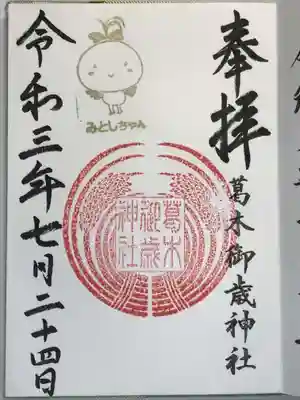 奉拝
葛木御歳神社
葛木
御歳
神社
みとしちゃん
令和三年七月二十四日